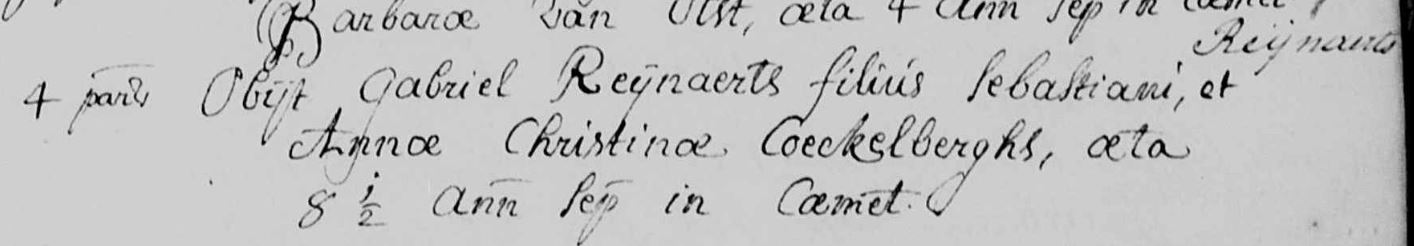 Barbaræ Van Olst, æta 4 Ann Sep in Cœmet
Reÿnaerts
4 parv Obÿt Gabriel Reÿnaerts filius Sebastiani, et
Annæ Christinæ Coeckelberghs, æta
8 1/2 Ann Sep in Cœmet.